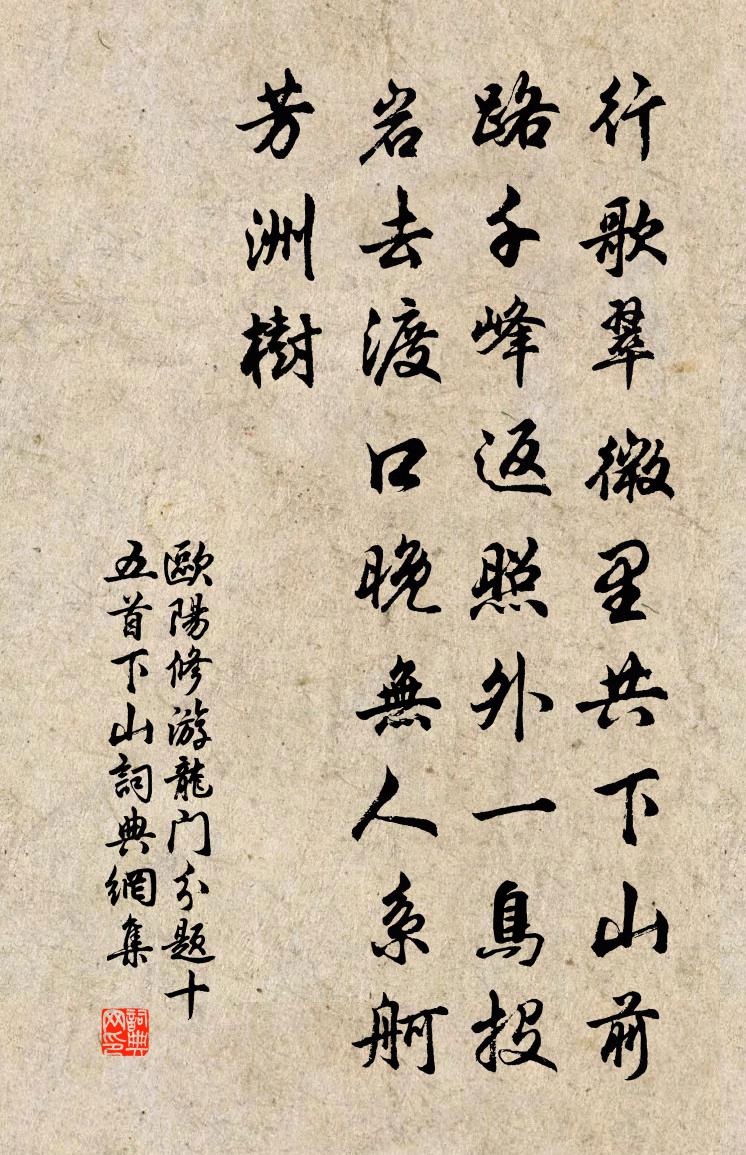 行歌翠微里共下山前
路千峰返照外一鳥投
岩去渡口晚無人系舸
芳洲樹
歐陽修游龍门分题十
五首下山詞典網集
詞典
网印